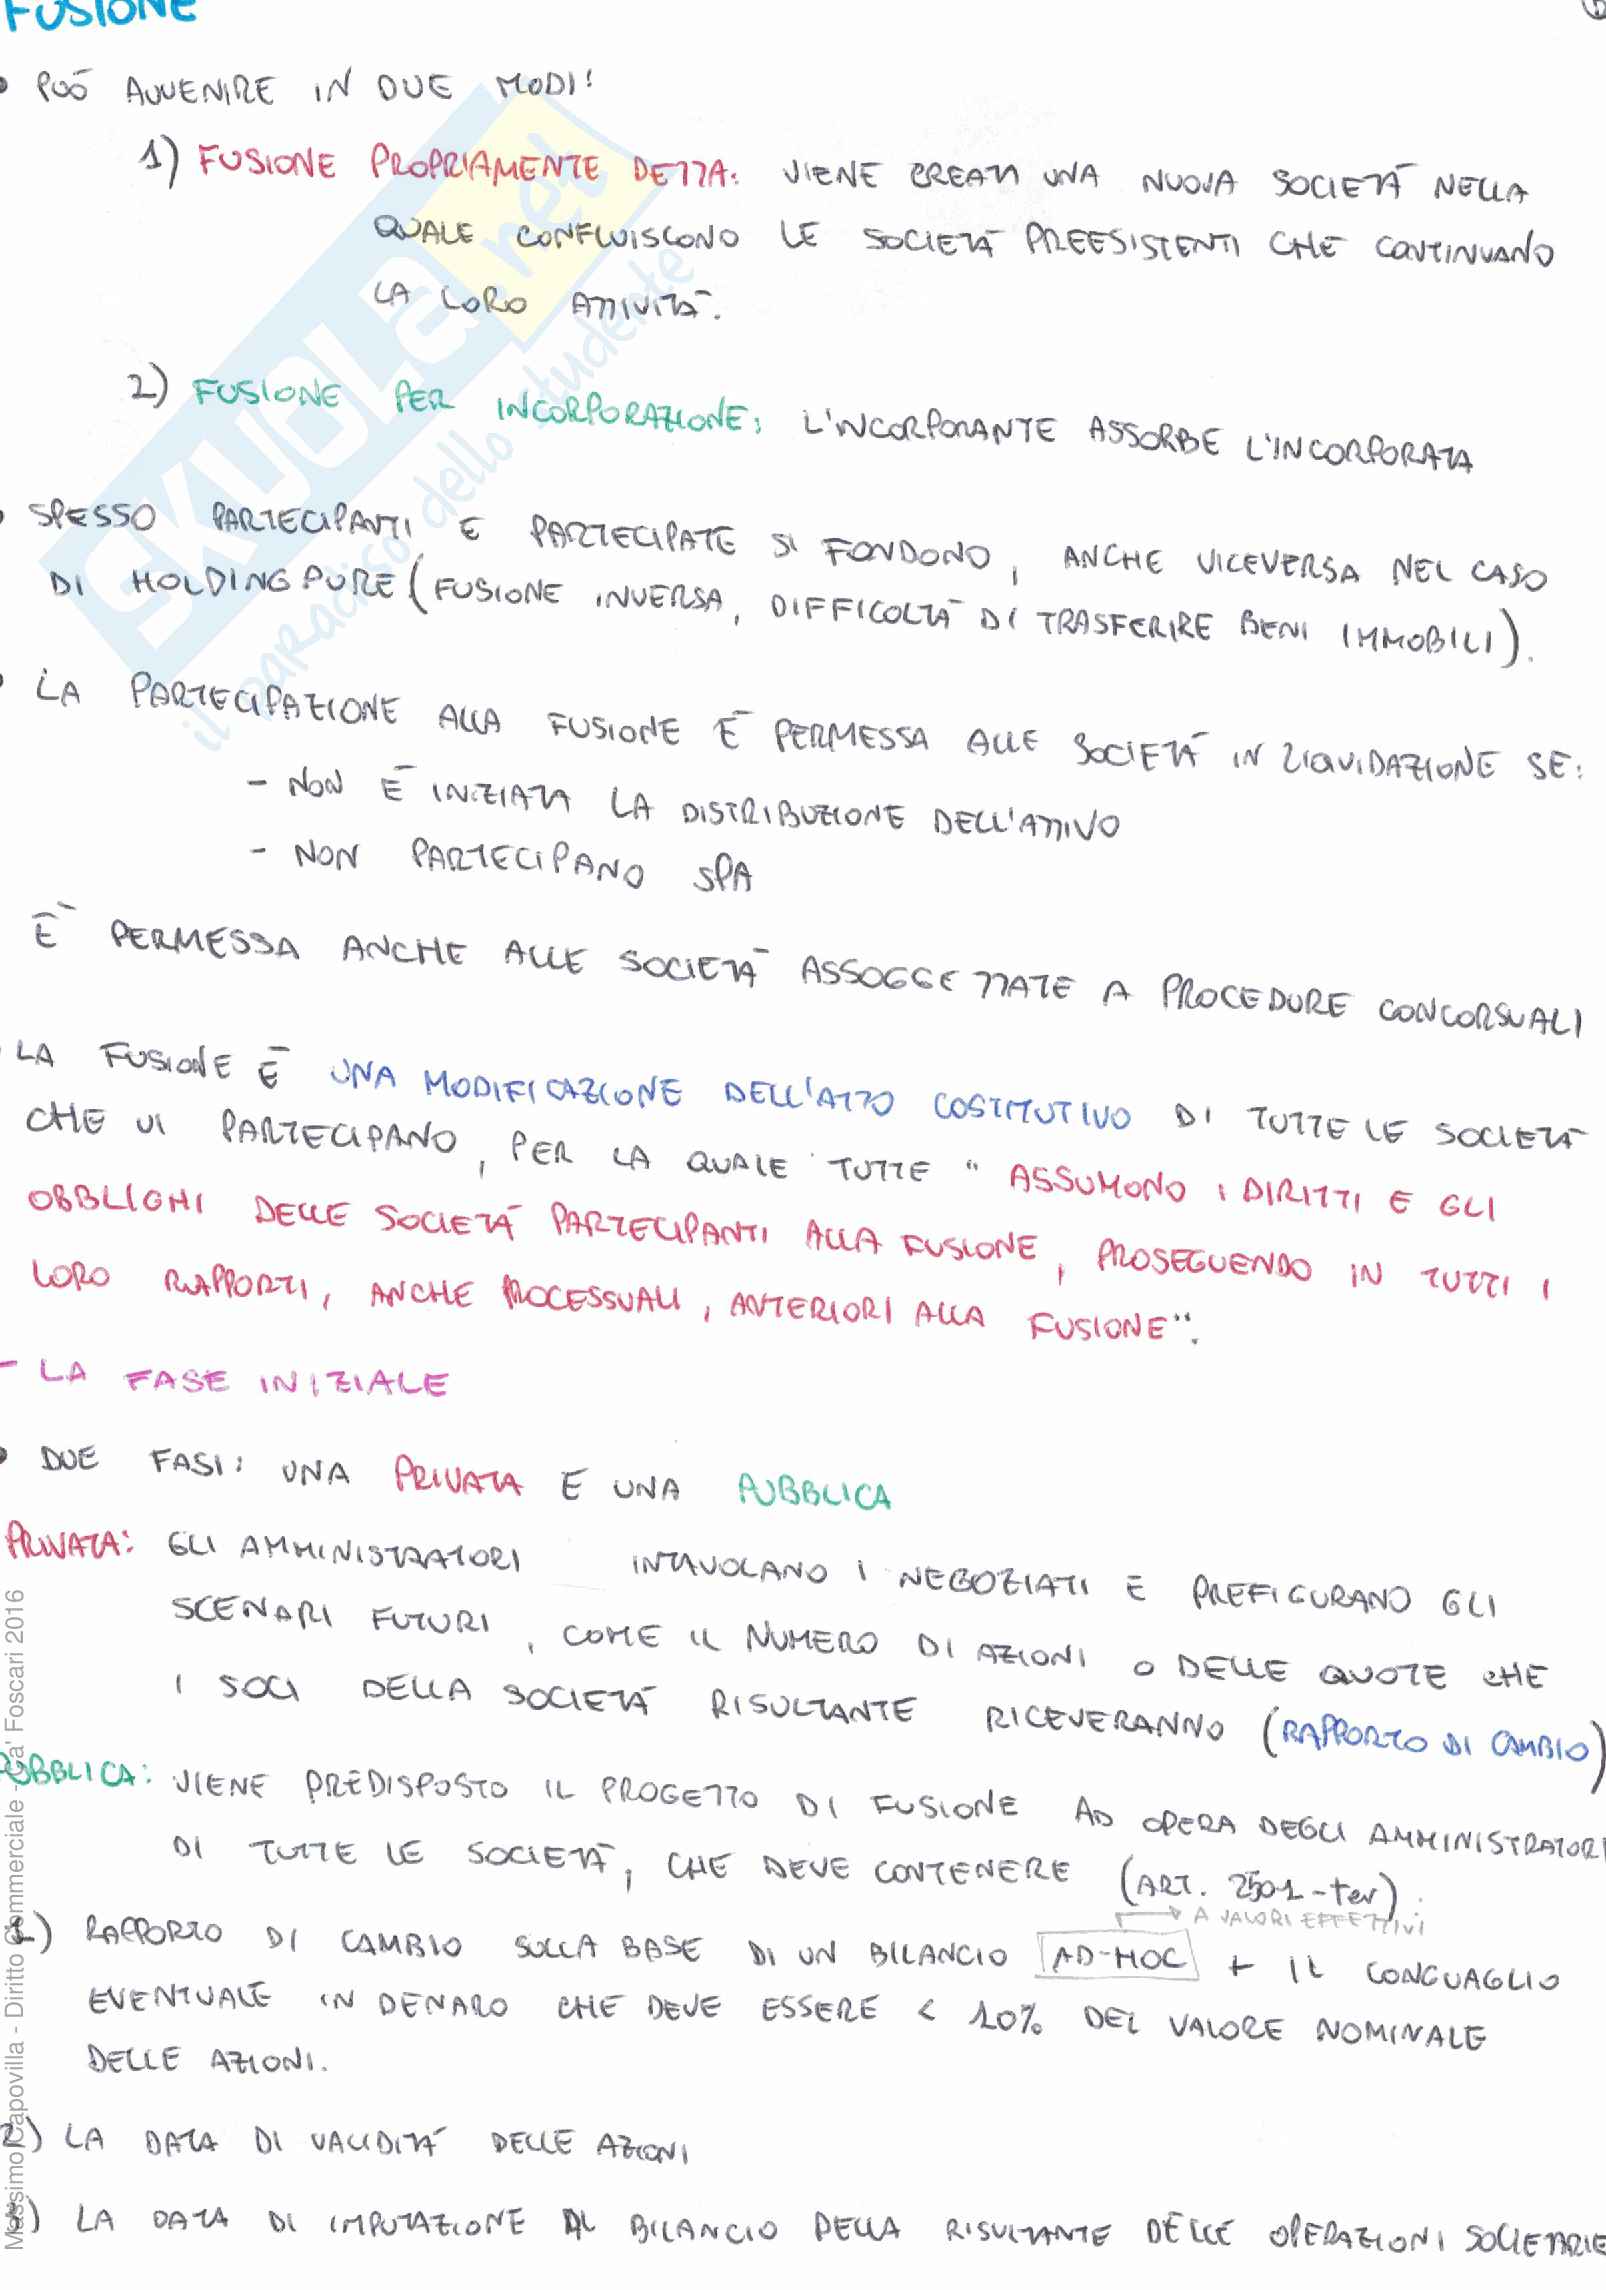 FUSIONE
• PUÒ AVVENIRE IN DUE MODI:
1) FUSIONE PROPRIAMENTE DETTA: VIENE CREATA UNA NUOVA SOCIETÀ NELLA
QUALE CONFLUISCONO LE SOCIETÀ PREESISTENTI CHE CONTINUANO
LA LORO ATTIVITÀ.
2) FUSIONE PER INCORPORAZIONE: L'INCORPORANTE ASSORBE L'INCORPORATA
• SPESSO PARTECIPANTI E PARTECIPATE SI FONDONO, ANCHE VICEVERSA NEL CASO
DI HOLDING PURE (FUSIONE INVERSA, DIFFICOLTÀ DI TRASFERIRE BENI IMMOBILI).
• LA PARTECIPAZIONE ALLA FUSIONE È PERMESSA ALLE SOCIETÀ IN LIQUIDAZIONE SE:
- NON È INIZIATA LA DISTRIBUZIONE DELL'ATTIVO
- NON PARTECIPANO SPA
È PERMESSA ANCHE ALLE SOCIETÀ ASSOGGETTATE A PROCEDURE CONCORSUALI
• LA FUSIONE È UNA MODIFICAZIONE DELL'ATTO COSTITUTIVO DI TUTTE LE SOCIETÀ
CHE VI PARTECIPANO, PER LA QUALE TUTTE "ASSUMONO I DIRITTI E GLI
OBBLIGHI DELLE SOCIETÀ PARTECIPANTI ALLA FUSIONE, PROSEGUENDO IN TUTTI I
LORO RAPPORTI, ANCHE PROCESSUALI, ANTERIORI ALLA FUSIONE".
- LA FASE INIZIALE
• DUE FASI: UNA PRIVATA E UNA PUBBLICA
PRIVATA: GLI AMMINISTRATORI INTAVOLANO I NEGOZIATI E PREFIGURANO GLI
SCENARI FUTURI, COME IL NUMERO DI AZIONI O DELLE QUOTE CHE
I SOCI DELLA SOCIETÀ RISULTANTE RICEVERANNO (RAPPORTO DI CAMBIO)
PUBBLICA: VIENE PREDISPOSTO IL PROGETTO DI FUSIONE AD OPERA DEGLI AMMINISTRATORI
DI TUTTE LE SOCIETÀ, CHE DEVE CONTENERE (ART. 2501-ter):
A VALORI EFFETTIVI
1) RAPPORTO DI CAMBIO SULLA BASE DI UN BILANCIO AD-HOC + IL CONGUAGLIO
EVENTUALE IN DENARO CHE DEVE ESSERE < 10% DEL VALORE NOMINALE
DELLE AZIONI.
2) LA DATA DI VALIDITÀ DELLE AZIONI
3) LA DATA DI IMPUTAZIONE AL BILANCIO DELLA RISULTANTE DELLE OPERAZIONI SOCIETARIE
SKUOLA.net
il paradiso dello studente
Massimo Capovilla - Diritto Commerciale - Ca' Foscari 2016